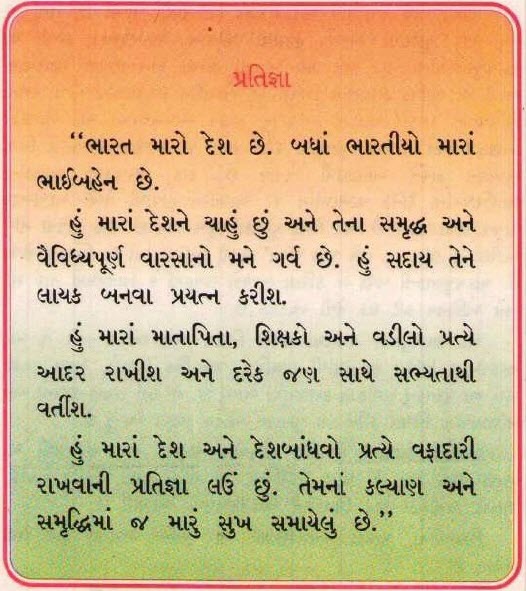 પ્રતિજ્ઞા
“ભારત મારો દેશ છે. બધાં ભારતીયો મારાં
ભાઈબહેન છે.
હું મારાં દેશને ચાહું છું અને તેના સમૃદ્ધ અને
વૈવિધ્યપૂર્ણ વારસાનો મને ગર્વ છે. હું સદાય તેને
લાયક બનવા પ્રયત્ન કરીશ.
હું મારાં માતાપિતા, શિક્ષકો અને વડીલો પ્રત્યે
આદર રાખીશ અને દરેક જણ સાથે સભ્યતાથી
વર્તીશ.
હું મારાં દેશ અને દેશબાંધવો પ્રત્યે વફાદારી
રાખવાની પ્રતિજ્ઞા લઉં છું. તેમનાં કલ્યાણ અને
સમૃદ્ધિમાં જ મારું સુખ સમાયેલું છે.”